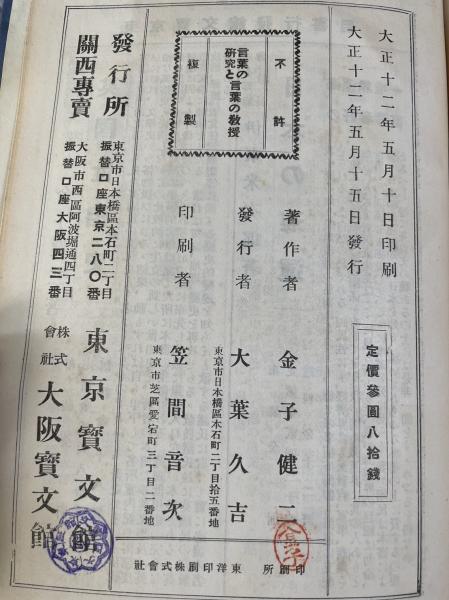 大正十二年五月十日印刷
大正十二年五月十五日發行
定價參圓八拾錢
不許
言葉の
研究と言葉の敎授
複製
著作者 金子健二
發行者 大葉久吉
東京市日本橋區本石町二丁目拾五番地
印刷者 笠間音次
東京市芝區愛宕町三丁目二番地
印刷所 東洋印刷株式會社
發行所
東京市日本橋區本石町二丁目
振替口座東京二八〇番
東京寶文館
關西專賣
大阪市西區阿波堀通四丁目
振替口座大阪四三番
株式
會社
大阪寶文館
金子